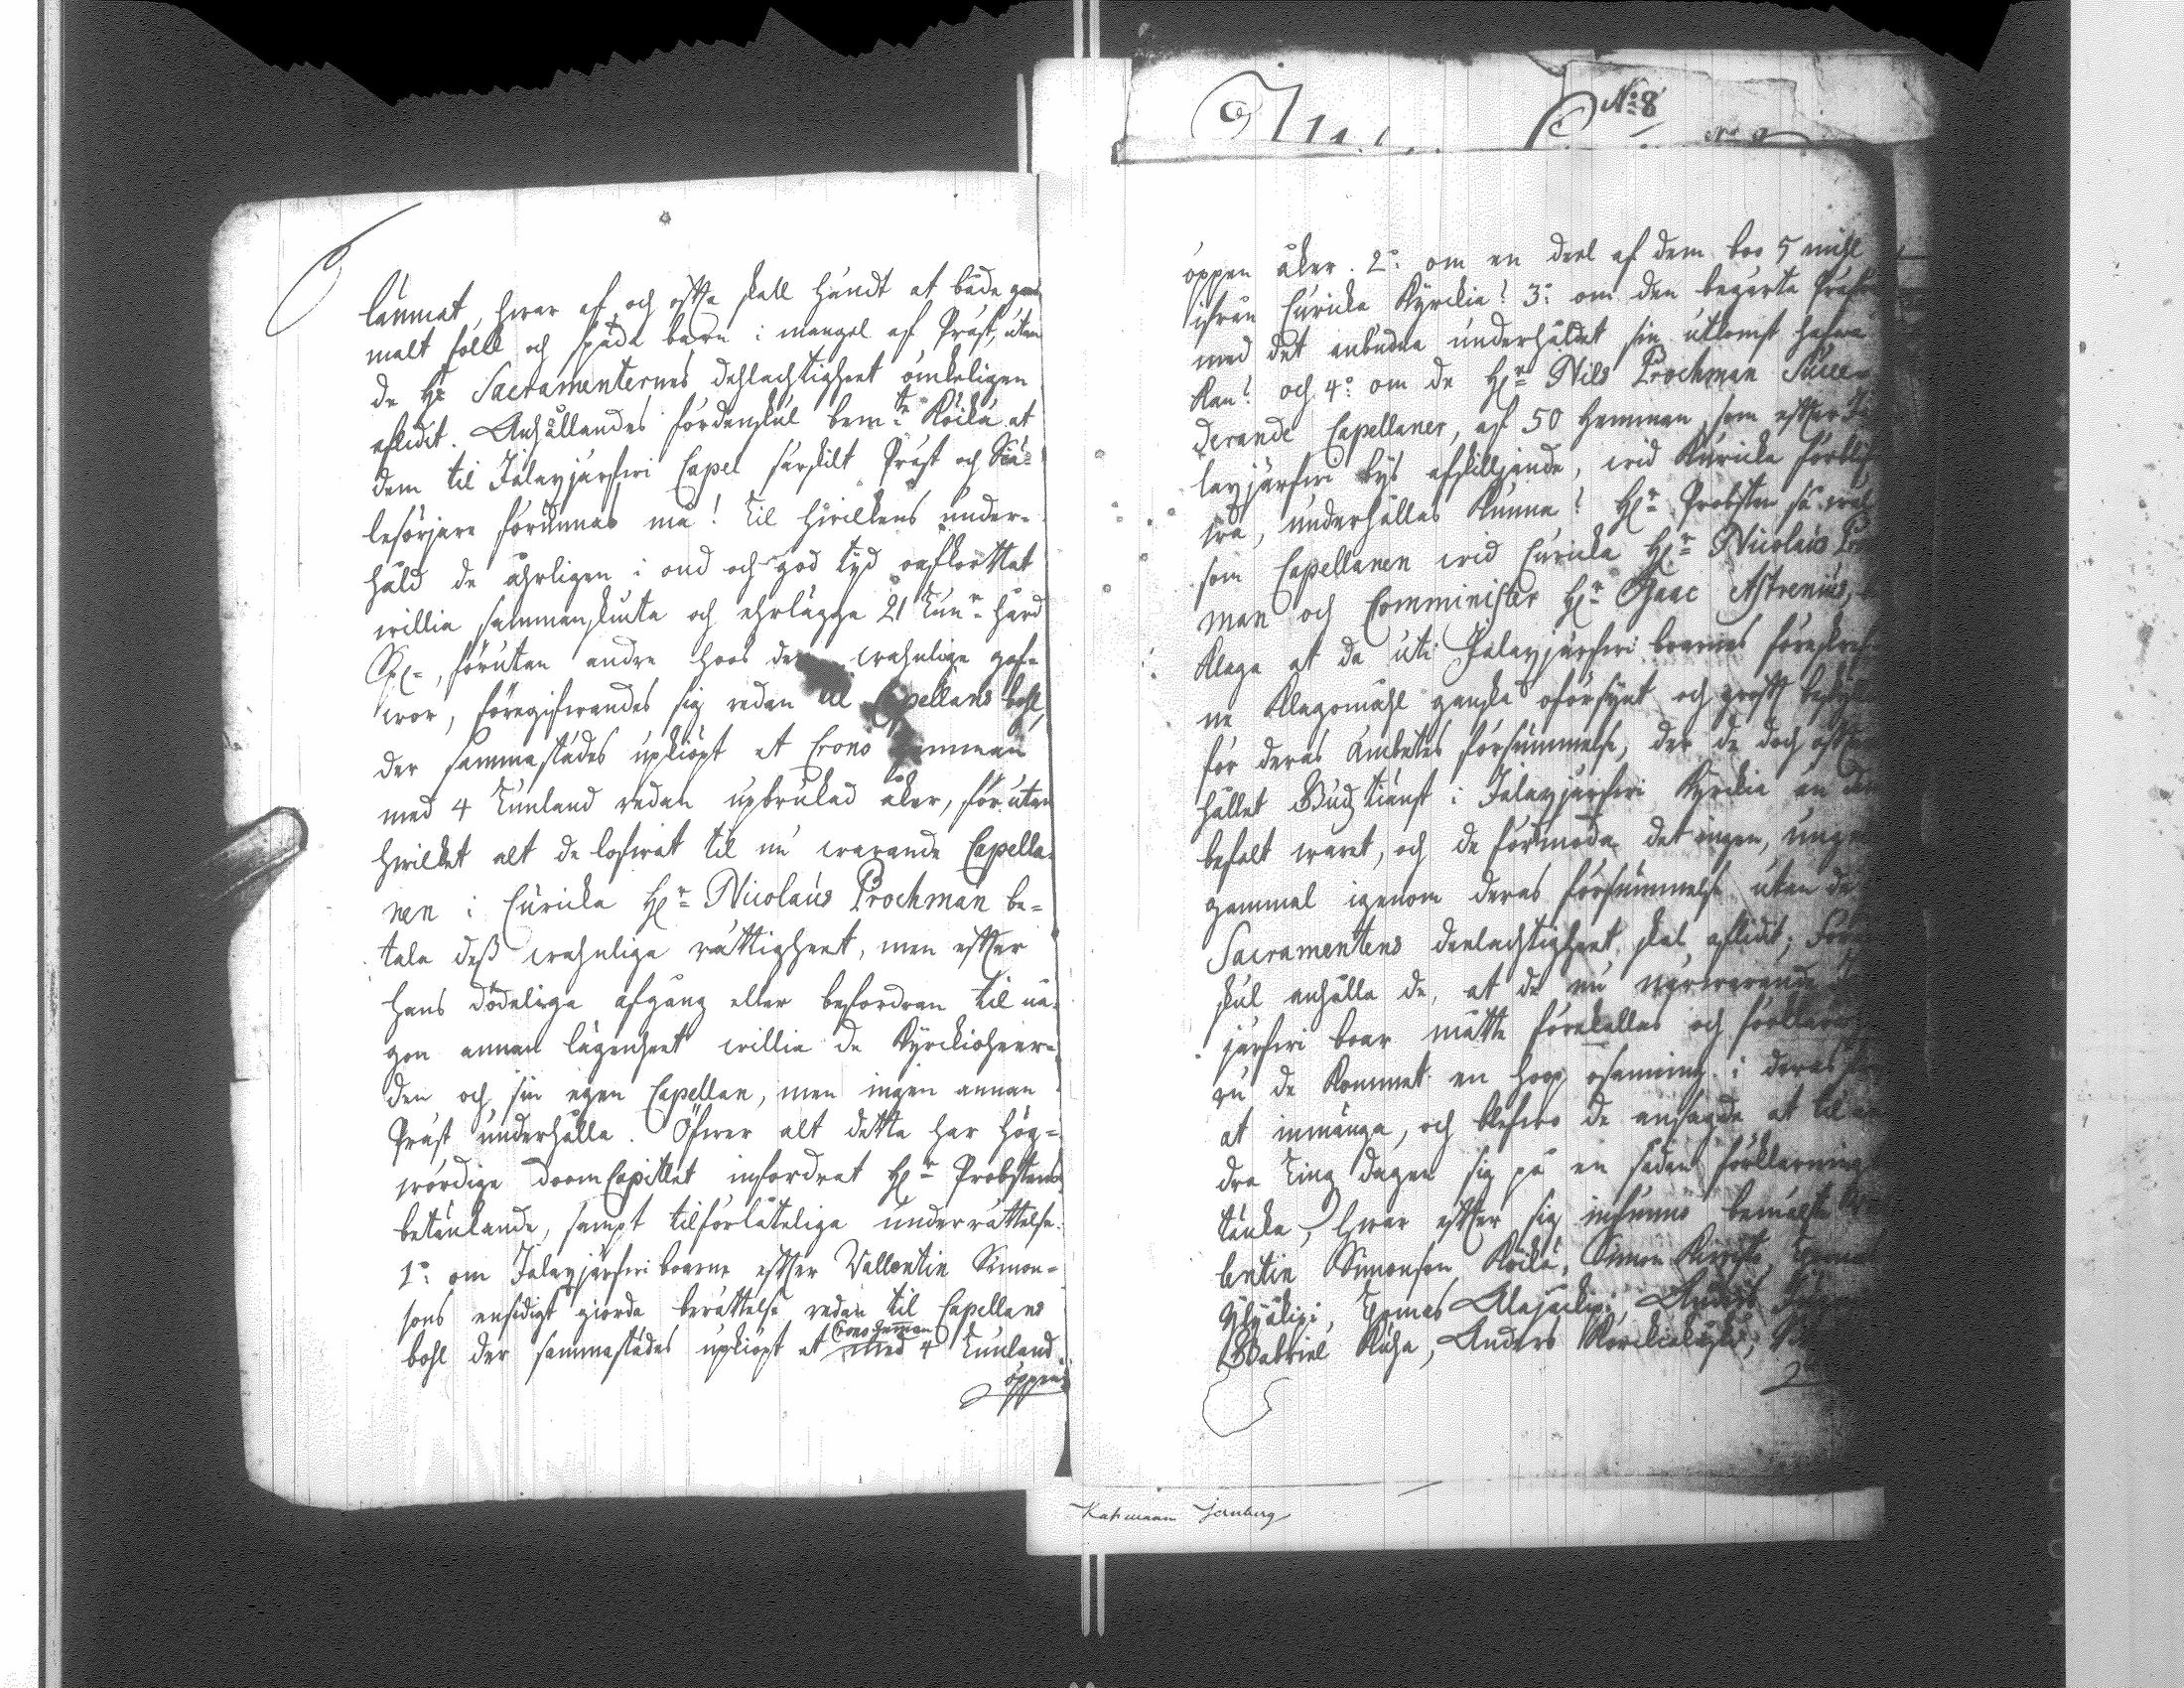 lämnat, hwar af och offta skall händt at både gam
malt folck och späda barn i mangel af Präst, utan
de Hr Sacramenternes dehlachtigheet ömkeligen
aflidit. Anhållandes fördenskul bem:te Köilä at
dem til Jalasjärfwi Capel särskilt Präst och Siä-
lesörjare förunnas må! til hwilkens under-
håld de åhrligen i ond och god tyd oafkorttat
willia sammanskiuta och ehrlägga 21 Tun:r
för utan andre hoos dem wahnlige gåf-
wor, föregifwandes sig redan til Capellans bohl,
der sammastädes upkiöpt et Crono Hemman
med 4 Tunland redan upbrukad åker, för utan
hwilket alt de lofwat til nu warande Capella-
nen i Curicka H:r Nicolaus Prochman be-
tala dess wahnliga rättigheet, men effter
hans dödeliga afgång eller befordran til nå-
gon annan lägenheet willia de Kyrckioheer-
den och sin egen Capellan, men ingen annan
Präst underhålla. Öfwer alt detta har Hög-
wördige DoomCapitlet infordrat H:r Probstens
betänkande, sampt tilförlåteliga underrättelse.
1:o om Jalasjärfwi boarne effter Vallentin Simon-
sons ensidigt giorda berättelse redan til Capellans
bohl der sammastädes upkiöpt et Crono hemman med 4 Tunland
öppen
N:o 8
öppen åker. 2:o om en deel af dem boo 5 mihl
ifrån Curicka Kyrckia? 3:o om den begärte Präst
med det anbudna underhåldet sin utkomst hafwa
Kan? och 4:o om de H:r Nils Prochman Succe-
derande Capellaner, af 50 Hemman, som effter Ja
lasjärfwi bys afskilljande, wid Kuricka förblif
wa, underhållas Kunna? H:r Probsten så wäl
som Capellanen wid Curicka H:r Nicolaus Pro
man och Comminister H:r Isaac Astrenius,
Klaga at de uti Jalasjärfwi boarnes föreskref
ne Klagomåhl ganska oförsynt och grofft beskylla
för deras ämbetes försummelse, der de doch offta
hållet Gudztiänst i Jalasjärfwi Kyrckia än dem
befalt waret, och de förmoda det ingen, ung
gammal igenom deras försummelse utan de
Sacramentens deelachtigheet skal aflidit; För
skul anhålla de, at de nu närwarande
järfwi boar måtte förekallas och förklara
zu de Kommet en hoop osanning i deras
at inmänga, och blefwo de ansagde at til an
dra Ting dagen sig på en sådan förklaring
tänka, hwar effter sig infunno bemälte Va
lentin Simonson Köilä, Simon
Thomas Alajackipi, Anders
Gabriel Luha, Anders
Kahmaam Jernberg